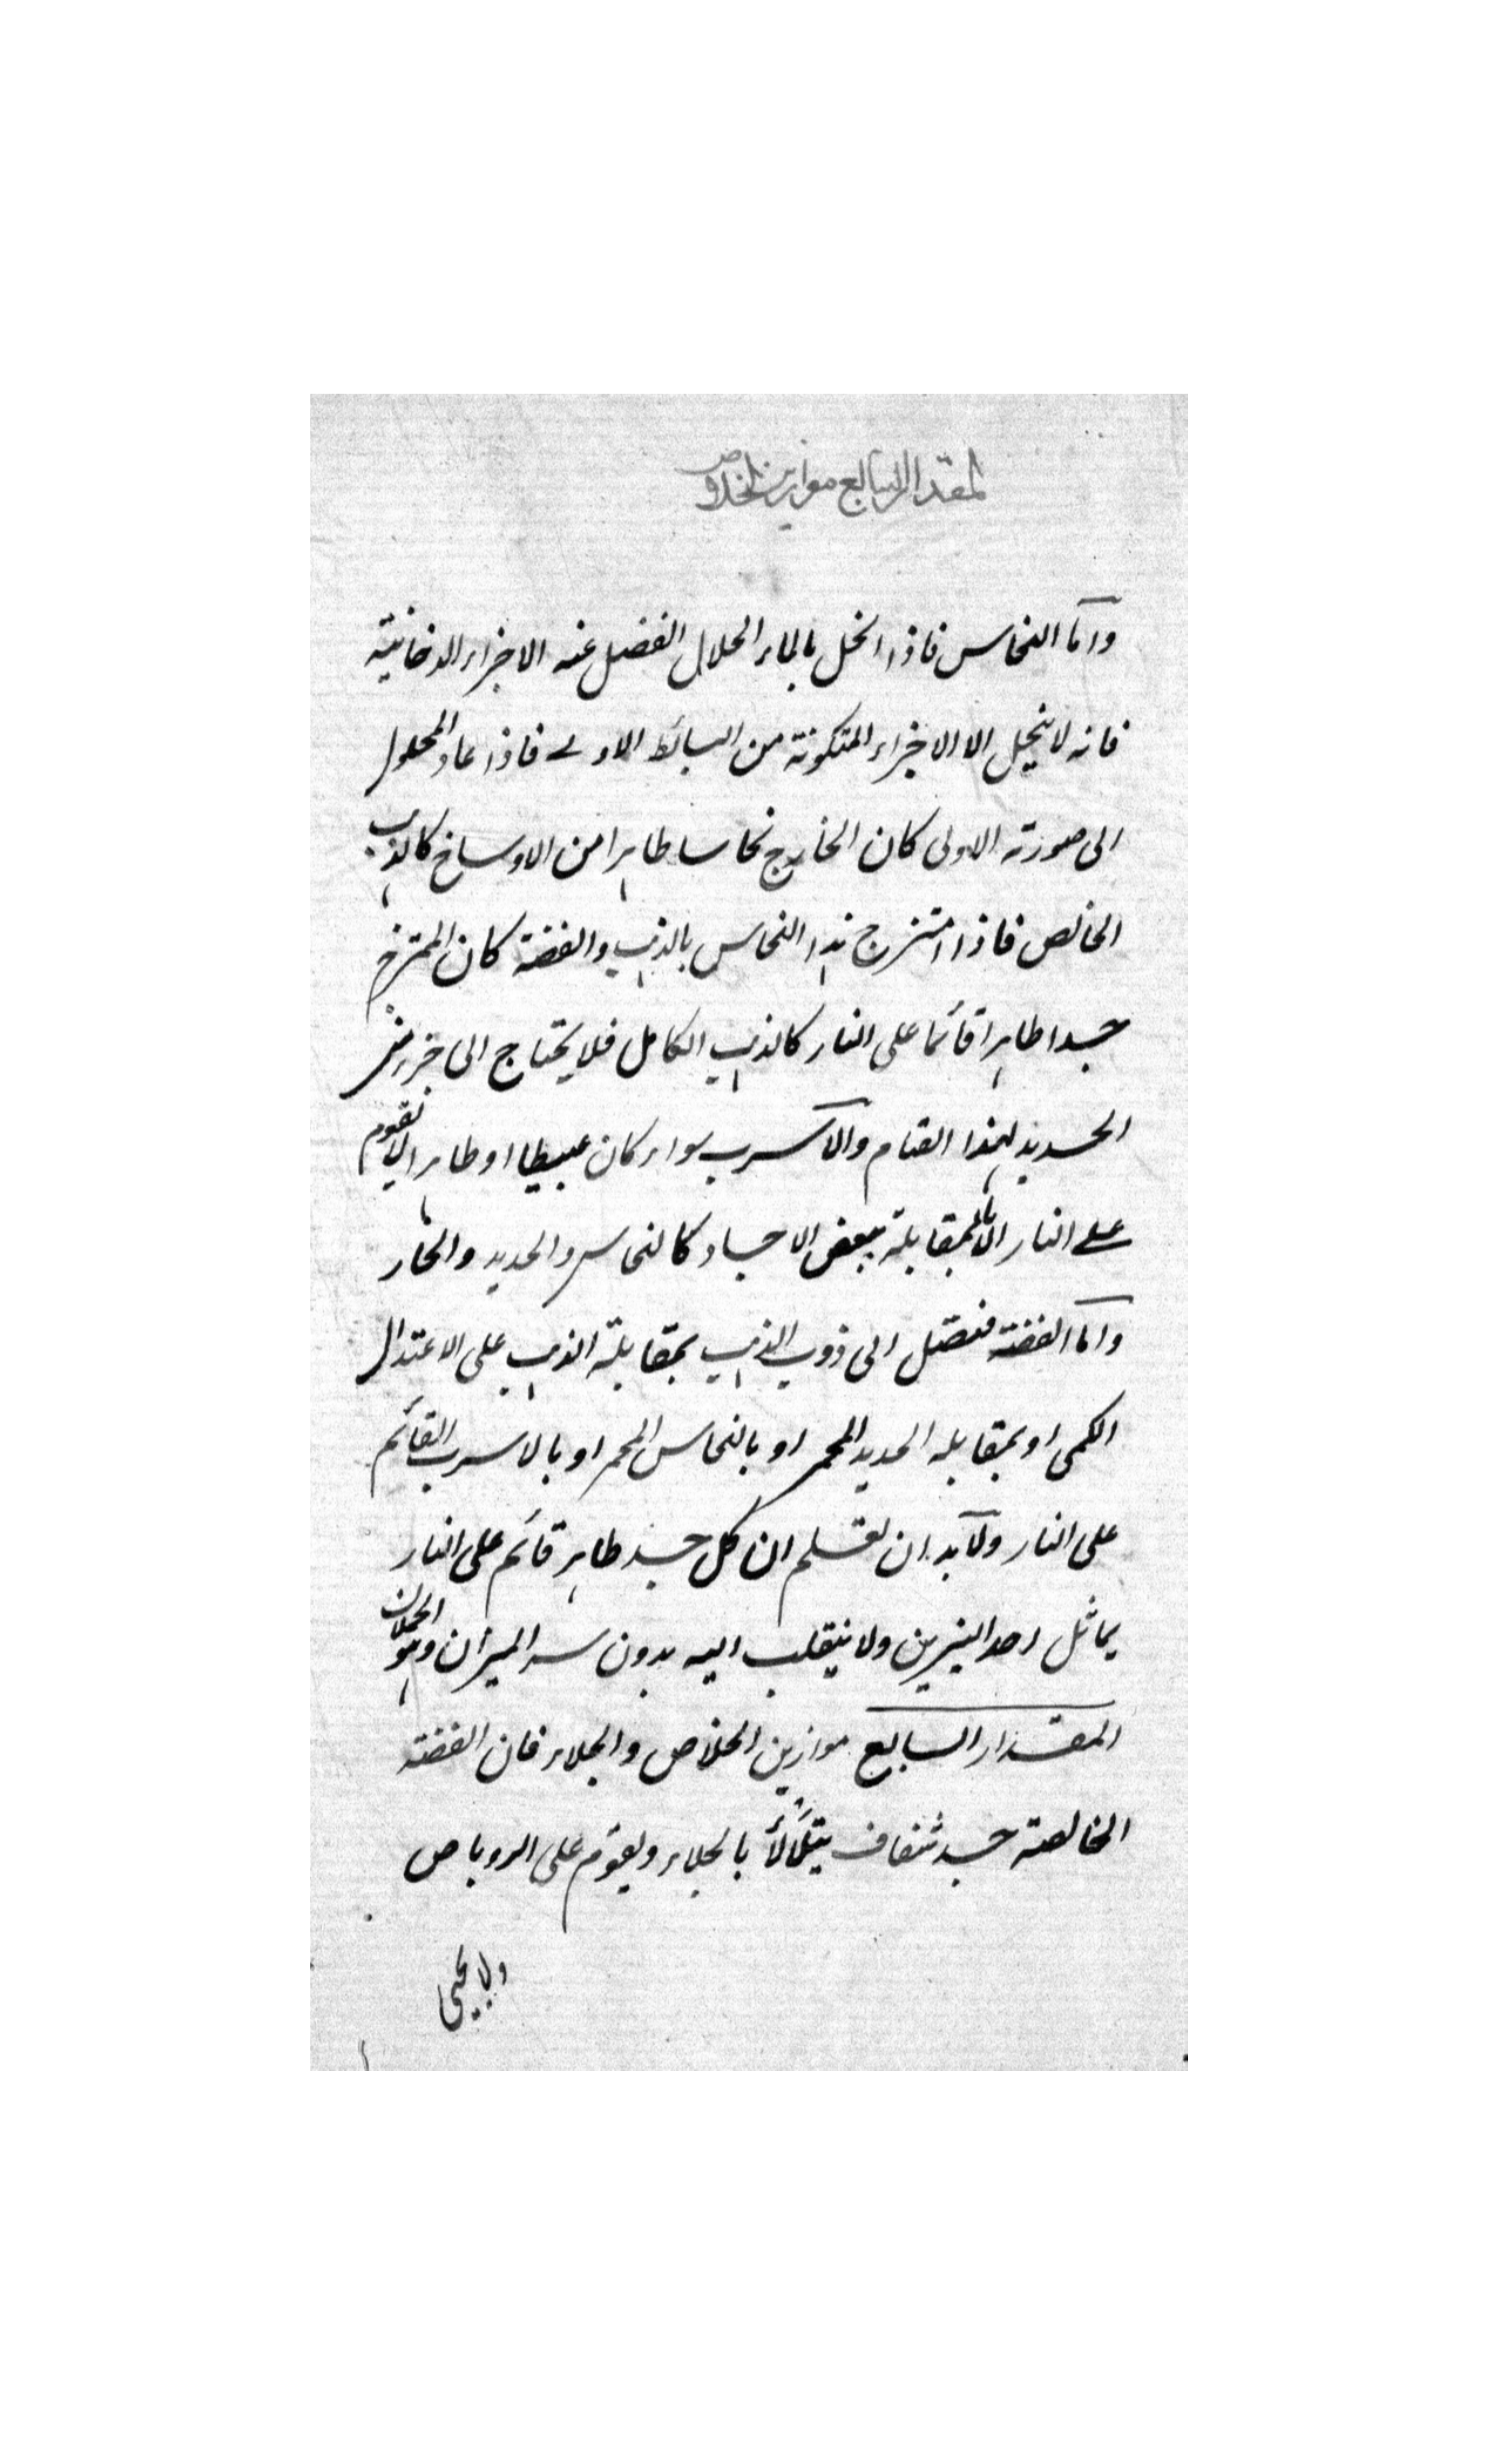 المقدار السابع موازين الخلاص
وامّا النحاس فاذا انحل بالماء الحلال انفصل عنه الاجزاء الدخانية
فانه لا ينحل الا الاجزاء المتكونة من البسائط الاولى فاذا عاد المحلول
الى صورته الاولى كان الخارج نحاسا طاهرا من الاوساخ كالذهب
الخالص فاذا امتزج هذا النحاس بالذهب والفضة كان الممتزج
جسدا طاهرا قائما على النار كالذهب الكامل فلا يحتاج الى جزء من
الحديد لهذا القيام والآسرب سواء كان عبيطا او طاهرا لا يقوم
على النار الا بالمقابلة ببعض الاجساد كالنحاس والحديد والنار
وامّا الفضة فتصل الى ذوب الذهب بمقابلة الذهب على الاعتدال
الكمى او بمقابله الحديد المحمر او بالنحاس المحمر او بالاسرب القائم
على النار ولابّد ان تعلم ان كل جسد طاهر قائم على النار
يماثل احد النيرين ولا ينقلب اليه بدون سر الميزان وهو الحملان
المقدار السابع موازين الخلاص والجلاء فان الفضة
الخالصة جسد شفاف يتلألأ بالجلاء ويقوم على الروباص
ولا يحيى